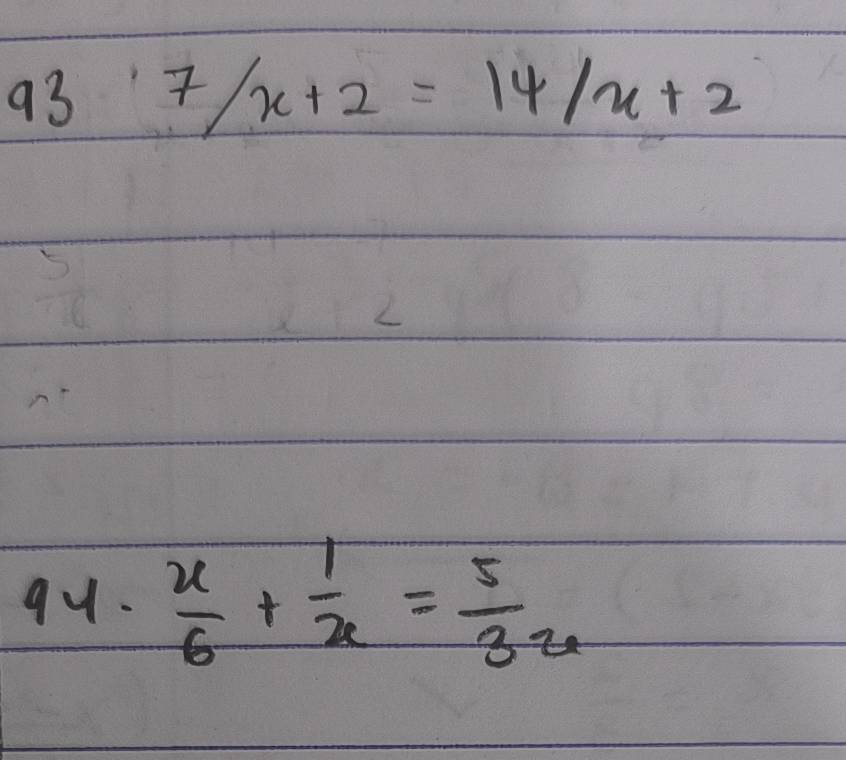 93 7/x+2 = 14/x+2
94. x/6 + 1/x = 5/3x